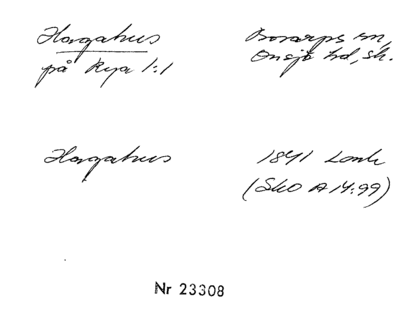 Hagahus
på Rya 1:1
Bosarps sn,
Onsjö hd, Sk.
Hagahus
1841 Lonk
(Sko A 14:99)
Nr 23308